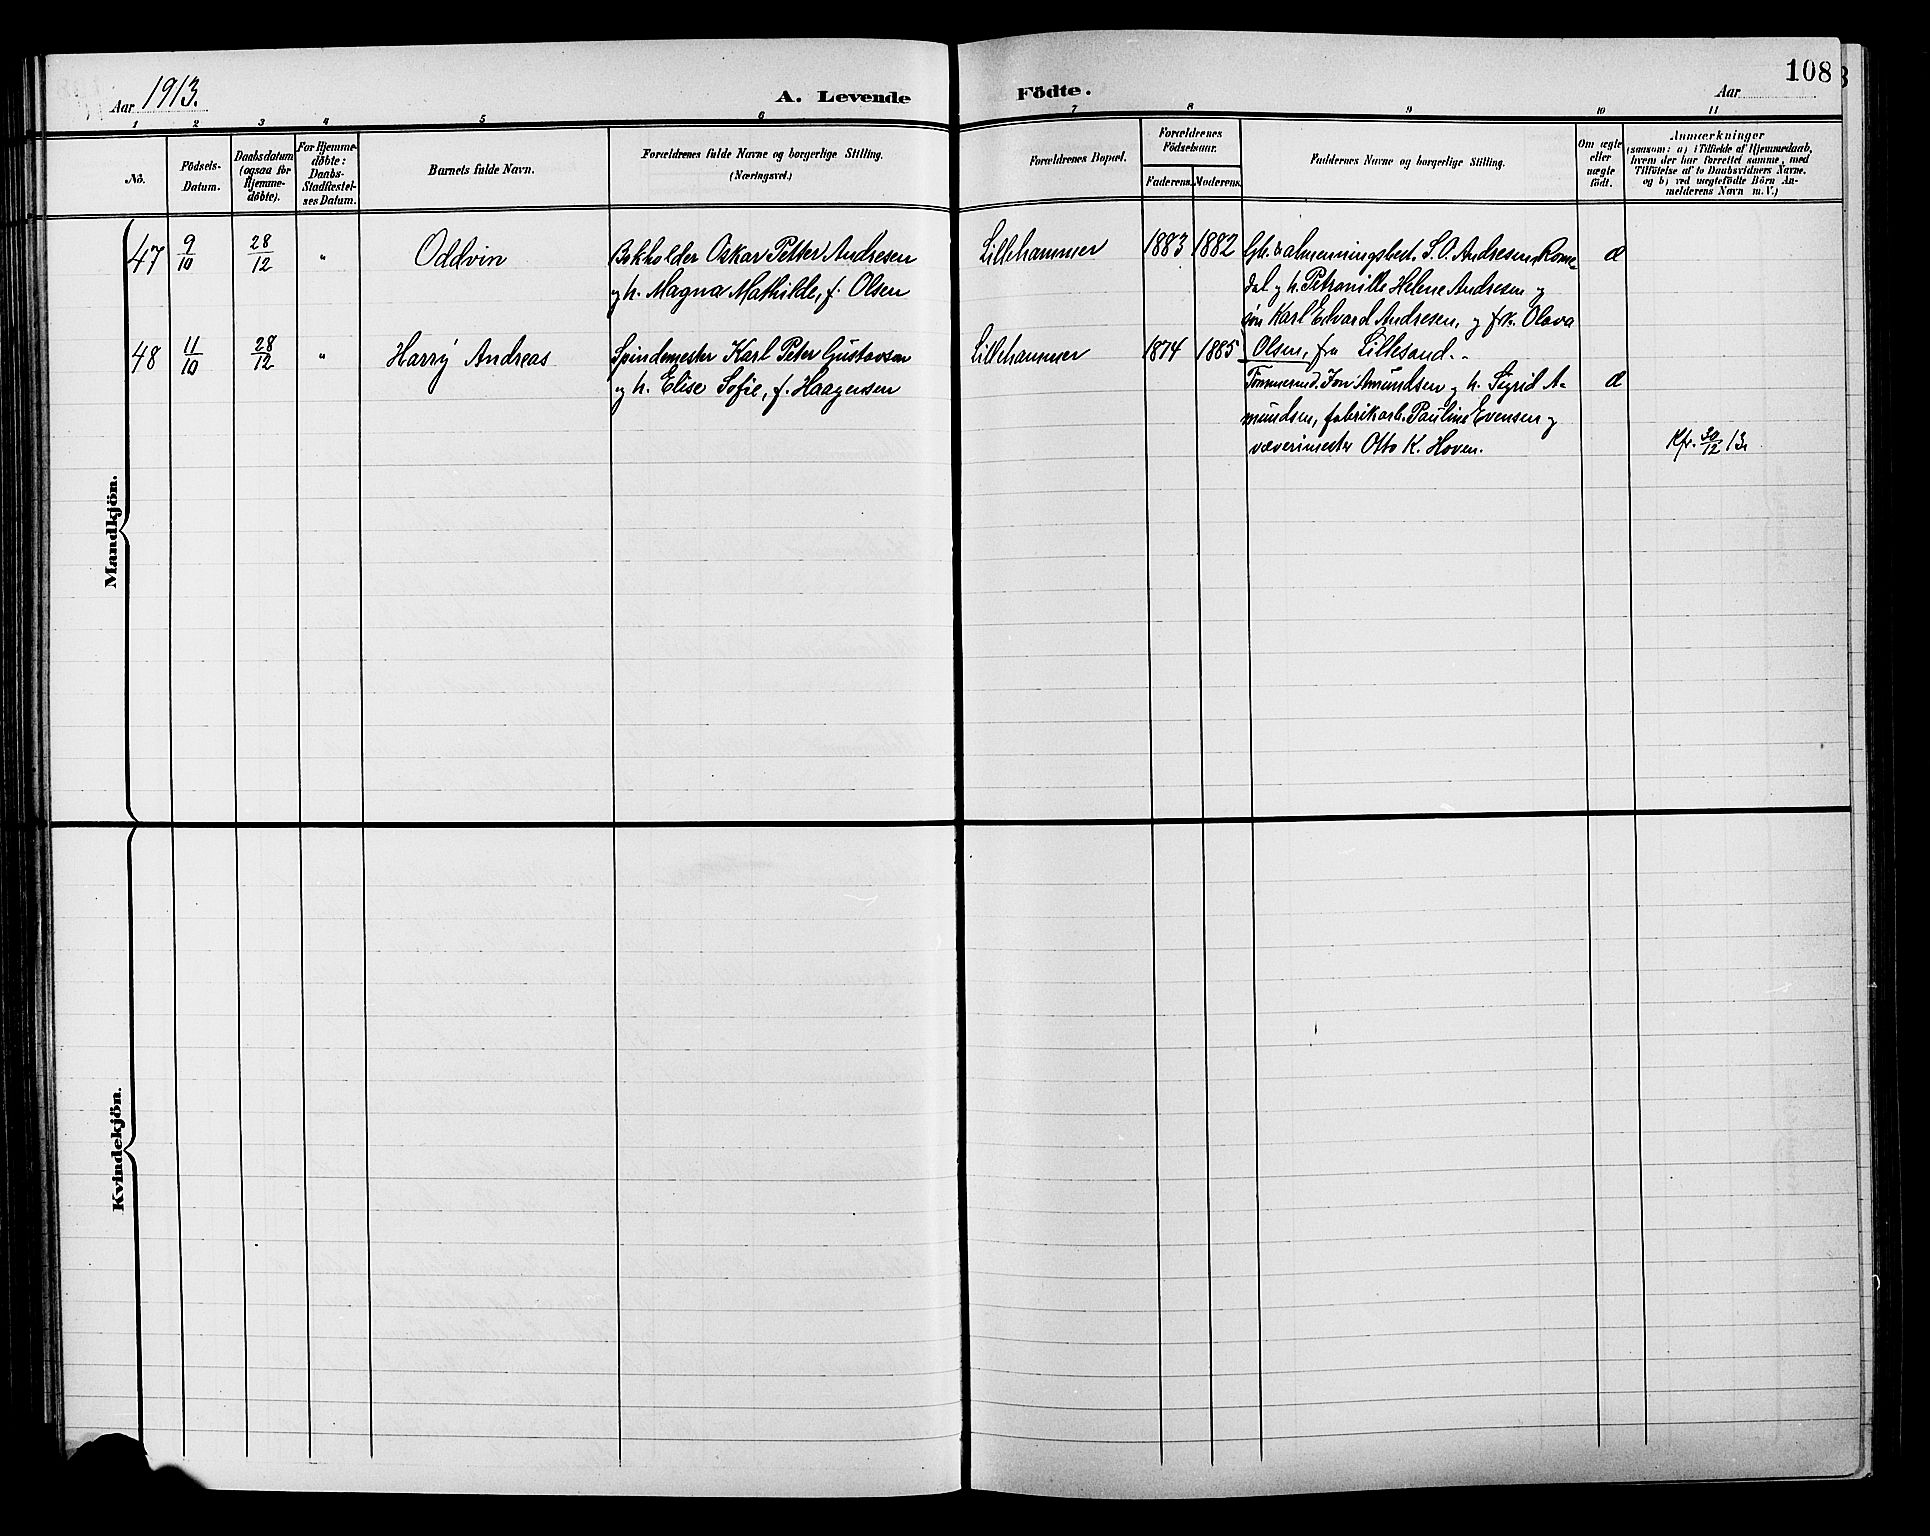 108
Aar 1913.
A. Levende Födte.
Aar
1 2 3 4 5 6 7 8 9 10 11
No.
Födsels-
Datum.
Daabsdatum
(ogsaa for
Hjemme-
döbte).
For Hjemme-
döbte:
Daabs-
Stadfæstel-
ses Datum.
Barnets fulde Navn.
Forældrenes fulde Navne og borgerlige Stilling.
(Næringsvei.)
Forældrenes Bopæl.
Forældrenes
Födselsaar.
Faderens. Moderens.
Faddernes Navne og borgerlige Stilling.
Om ægte
eller
uægte
födt.
Anmærkninger
(saasom: a) i Tilfælde af Hjemmedaab,
hvem der har forrettet samme, med
Tilföielse af to Daabsvidners Navne.
og b) ved uægtefödte Börn An-
melderens Navn m. V.)
Mandkjön.
47 9/10 28/12 " Oddvin
Bokholder Oskar Petter Andresen
og h. Magna Mathilde, f. Olsen
Lillehammer 1883 1882
Gb. & almenningsbest. S. O. Andresen, Rome-
dal og h. Petronille Helene Andresen og
søn Karl Edvard Andresen, og frk. Olava
Olsen, fra Lillesand.
48 11/10 28/12 " Harry Andreas
Spindemester Karl Peter Gustavsen
og h. Elise Sofie, f. Haagensen
Lillehammer 1874 1885
Jon Amundsen og h. Sigrid A-
mundsen, fabrikarb. Pauline Evensen og
væverimester Otto K. Hoven.
Kfr. 30/12 13.
Kvindekjön.